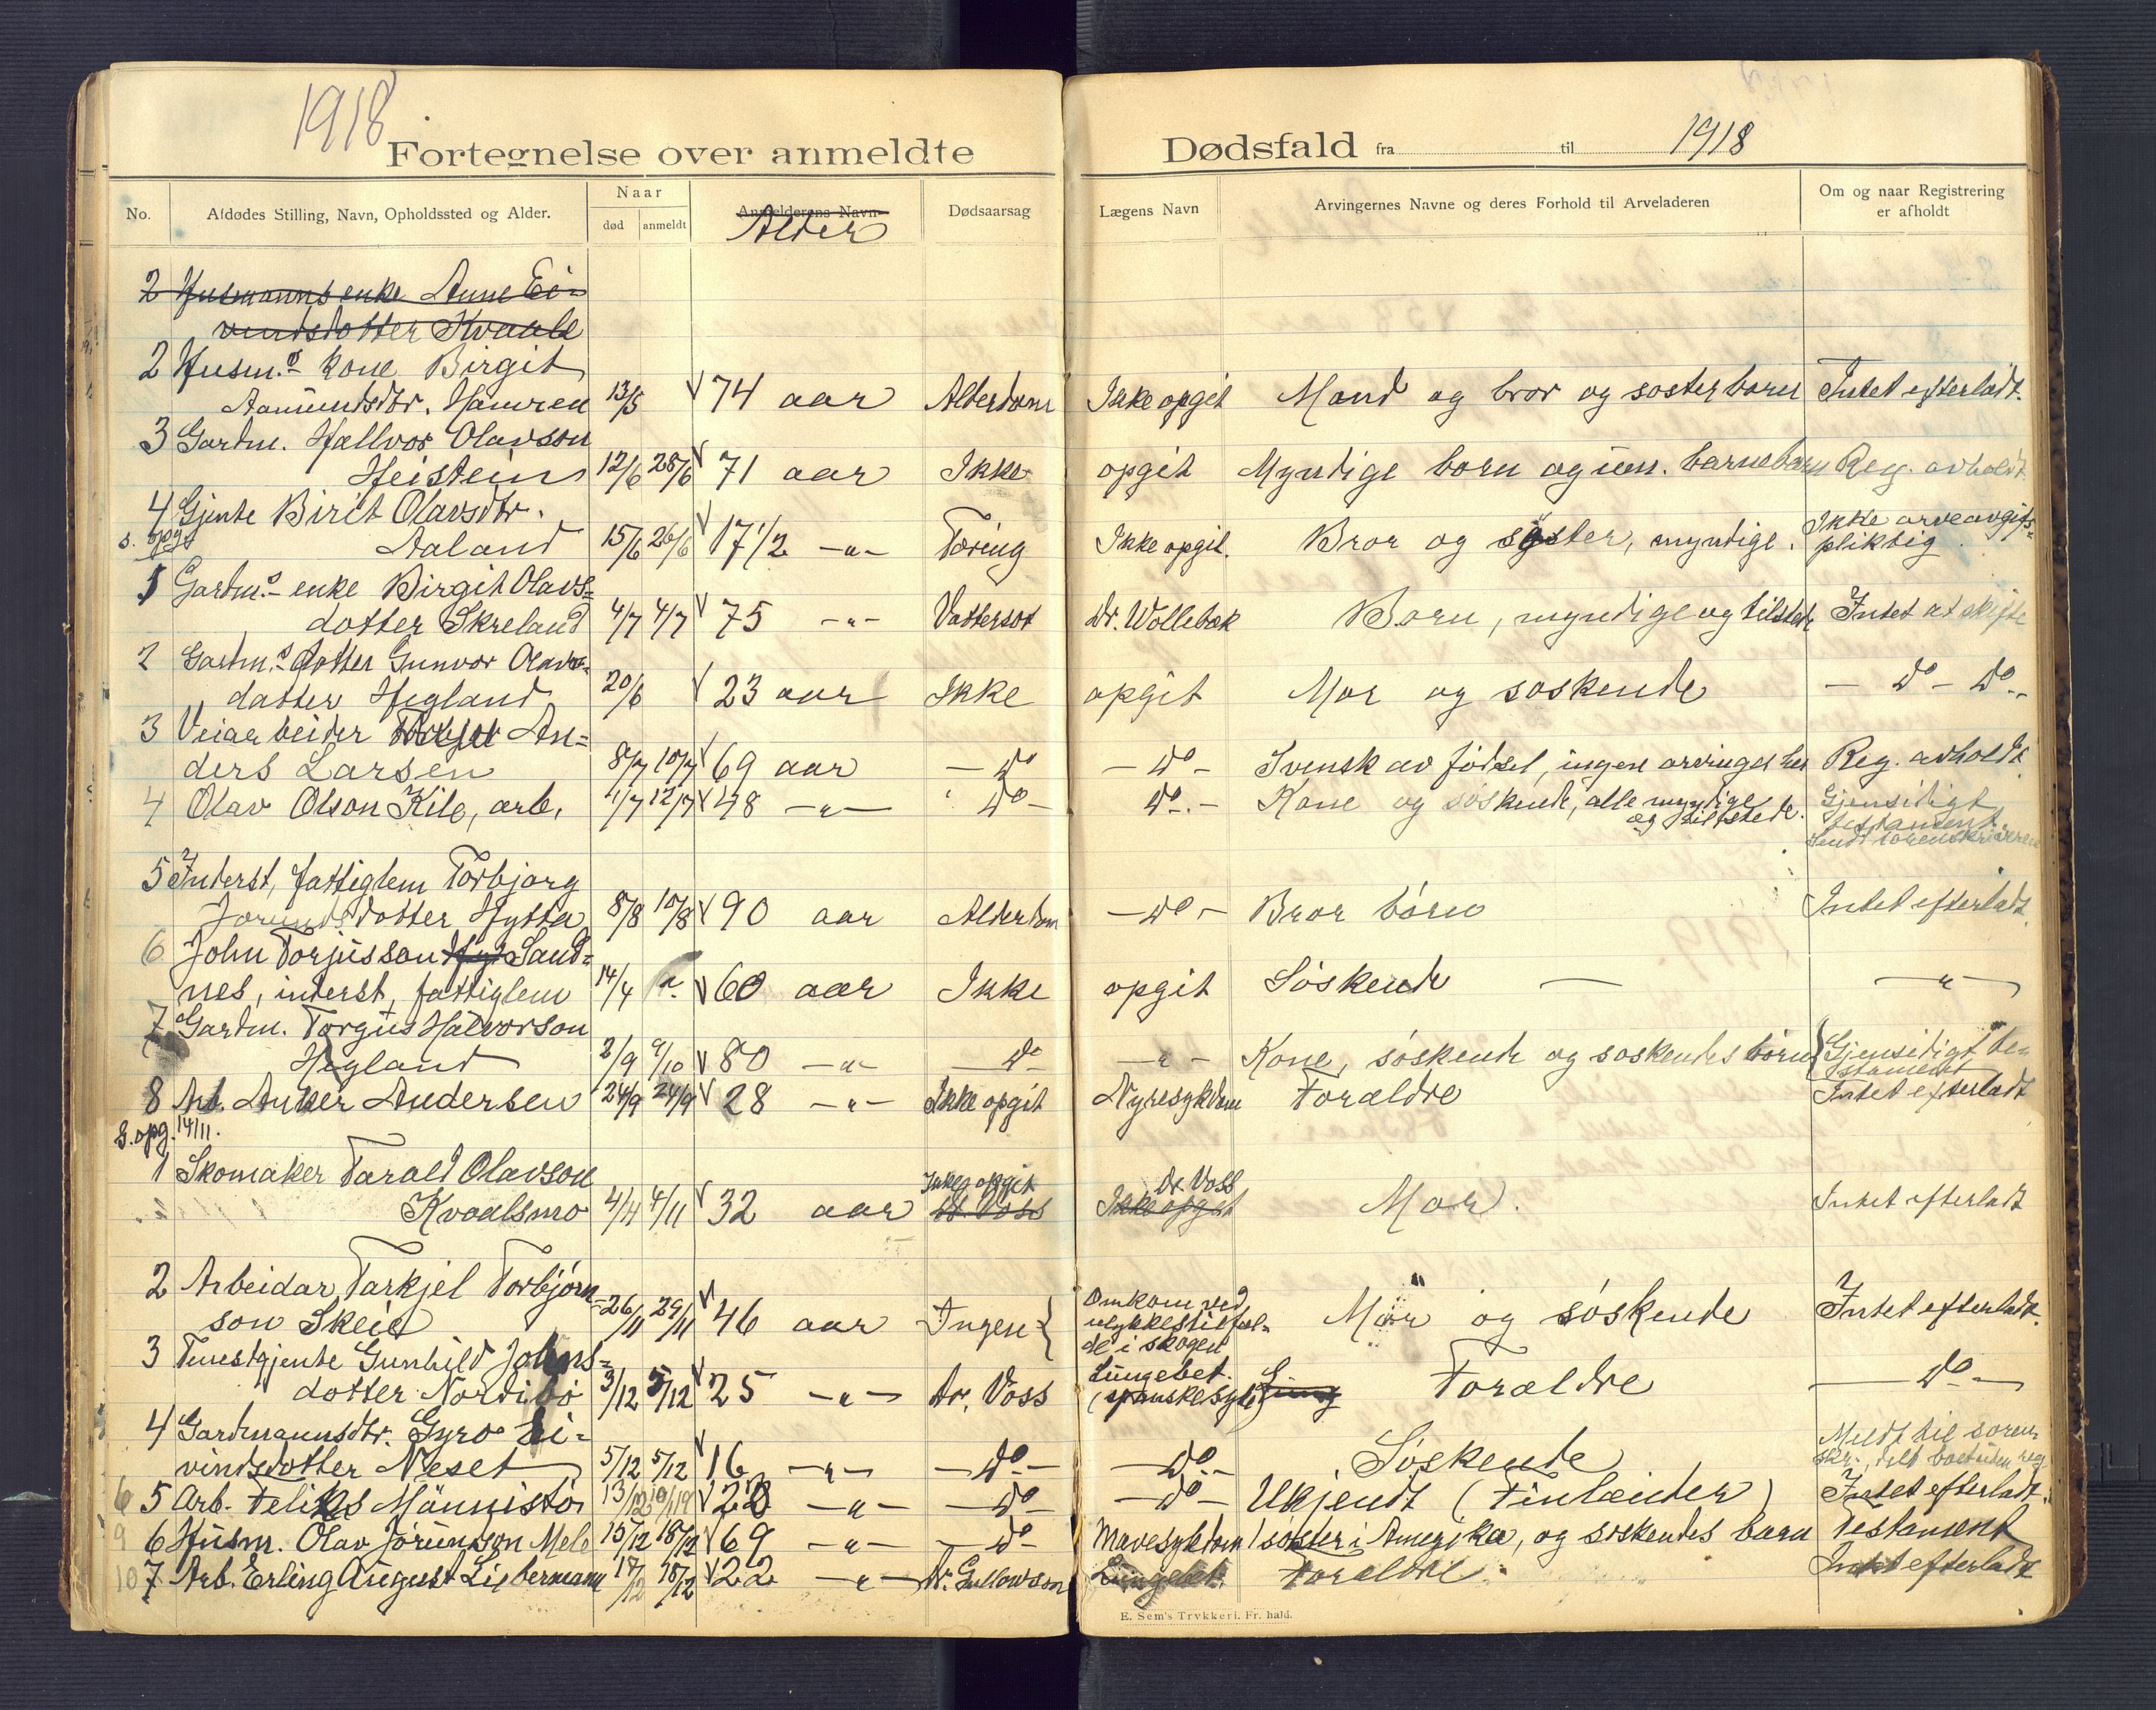 1918
Fortegnelse over anmeldte Dødsfald fra til 1918
No. Afdødes Stilling, Navn, Opholdssted og Alder. Naar død anmeldt Anmelderens Navn Alder Dødsaarsag Lægens Navn Arvingernes Navne og deres Forhold til Arveladeren Om og naar Registrering er afholdt
2 Husmanns enke Anne Ei-
vindsdotter Kvaale
2 Husm.s kone Birgit
Aamundsdtr. Hamren 13/5 74 aar Alderdom Ikke opgit Mand og bror og søster barn Intet efterladt.
3 Gardm. Hallvor Olavson
Heistein 12/6 28/6 71 aar Ikke opgit Myndige born og um. barneborn Reg. avholdt
4 Gjente Birit Olavsdtr.
s. opg. Aaland 15/6 26/6 17 1/2 -"- Tæring Ikke opgit. Bror og søster, myndige. Ikke arveavgifts-
pliktig
1 Gardm.s enke Birgit Olavs-
dotter Skreland 4/7 4/7 75 -"- Vattersot Dr. Wollebæk Born, myndige og tilstede Intet at skifte
2 Gardm.s dotter Gunvor Olavs-
datter Hegland 20/6 23 aar Ikke opgit Mor og søskende - do - do -
3 Veiarbeider An-
ders Larsen 8/7 10/7 69 aar - do - do - Svensk av fødsel, ingen arvinger her Reg. avholdt
4 Olav Olson Kile, arb. 1/7 12/7 48 -"- do - do - Kone og søskende, alle myndige
og tilstede. Gjensidigt
testament.
Sendt sorenskriveren
5 Inderst, fattiglem Torbjørg
Jorundsdotter Hytta 8/8 10/8 90 aar Alderdom - do - Bror børn Intet efterladt
6 John Torjusson Sand-
nes, inderst, fattiglem 14/4 60 aar Ikke opgit Søskende - -"-
7 Gardm. Torgus Halvorson
Hegland 2/9 9/10 80 -"- do - -"- Kone, søskende og søskendes børn Gjensidigt te-
stament
8 Arb. Anker Andersen 24/9 24/9 28 -"- Ikke opgit Nyresykdom Forældre Intet efterladt
S. opg. 14/11.
1 Skomaker Tarald Olavson Ikke opgit Dr. Voss
Kvaalsmo 4/11 4/11 32 aar Dr. Voss Ikke opgit Mor. Intet efterladt
2 Arbeidar Tarkjel Torbjørn-
son Skeie 26/11 29/11 46 aar Ingen Omkom ved
ulykkestilfæl-
de i skogen Mor og søskende Intet efterladt.
3 Tenestgjente Gunhild Johns-
dotter Nordibø 3/12 5/12 25 -"- Dr. Voss Lungebet.
(spanskesyke) Forældre - do -
4 Gardmannsdtr. Gyro Ei-
vindsdotter Neset 5/12 5/12 16 -"- - do - - do - Søskende Meldt til soren-
skr.
6 5 Arb. Feliks Männistö 13/12 28 -"- - do - - do - Ukjendt (Finlænder) Intet efterladt.
9 6 Husm. Olav Jorundson Mele 15/12 18/12 69 -"- - do - Mavesykdom 1 søster i Amerika, og søskendes barn Testament
10 7 Arb. Erling August Liebermann 17/12 18/12 22 -"- Lungebet. Forældre. Intet efterladt
E. Sem's Trykkeri. Fr. hald.